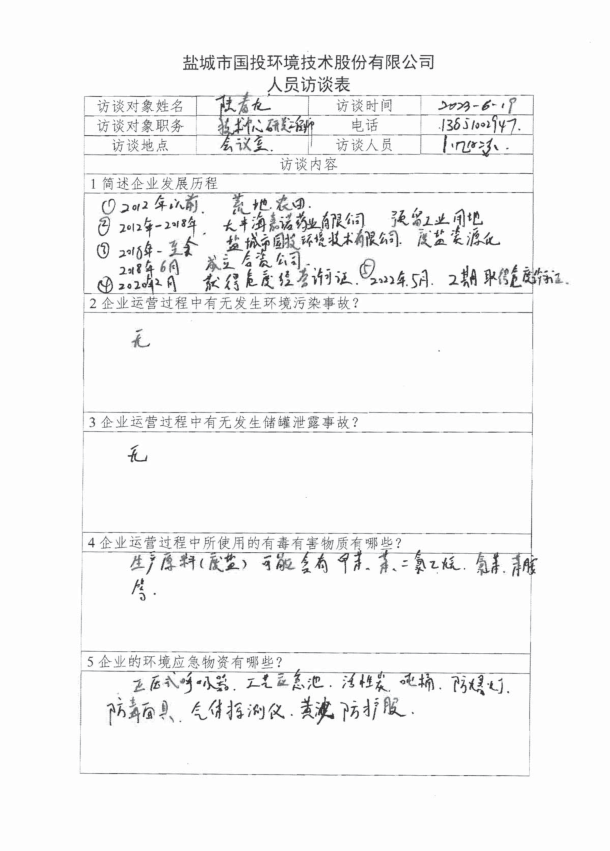 盐城市国投环境技术股份有限公司
人员访谈表
访谈对象姓名 访谈时间 2023-6-19
访谈对象职务 技术中心研发工程师 电话 13651002947.
访谈地点 会议室. 访谈人员
访谈内容
1 简述企业发展历程
① 2012年以前. 荒地农田.
② 2012年-2018年. 大丰海嘉诺药业有限公司 预留工业用地
③ 2018年-至今 盐城市国投环境技术有限公司. 废盐资源化
2018年6月 成立合资公司.
④ 2020年2月 获得危废经营许可证. ⑤ 2022年5月. 2期取得危废许可证.
2 企业运营过程中有无发生环境污染事故？
无
3 企业运营过程中有无发生储罐泄露事故？
无
4 企业运营过程中所使用的有毒有害物质有哪些？
生产原料(废盐) 可能含有 甲苯、苯、二氯乙烷、氯苯、苯胺
等.
5 企业的环境应急物资有哪些？
正压式呼吸器、工艺应急池、活性炭、吨桶、防爆灯、
防毒面具、气体探测仪、黄沙、防护服.